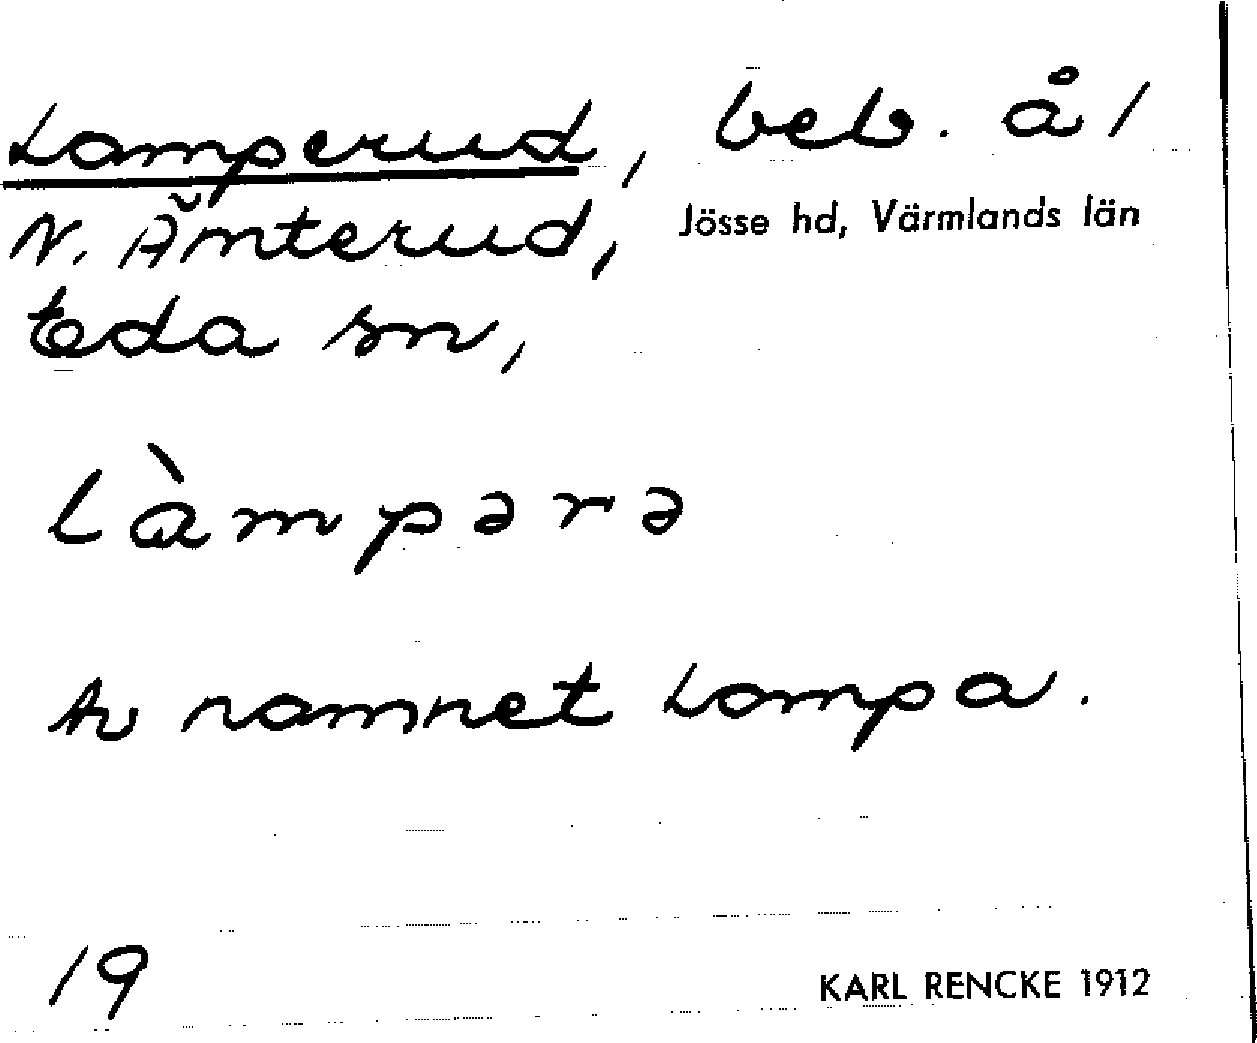 Lamperud, beb. å /
N. Ämterud, Jösse hd, Värmlands län
Eda sn,
làmpərə
Av namnet Lampa.
19
KARL RENCKE 1912